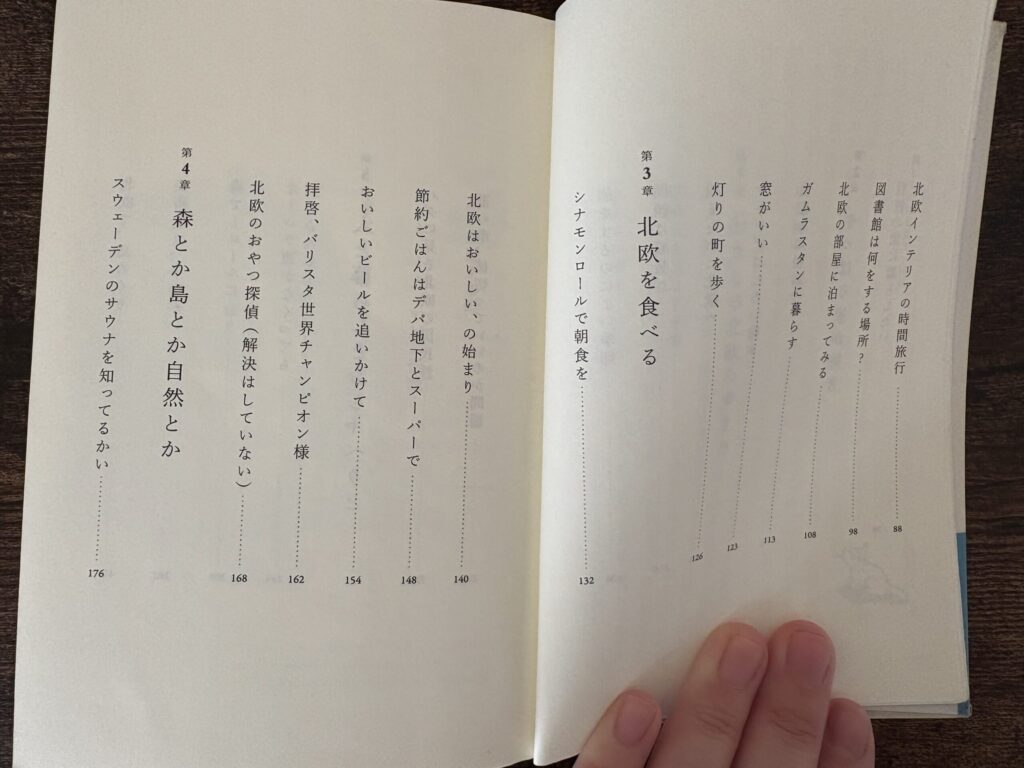 北欧インテリアの時間旅行 88
図書館は何をする場所? 98
北欧の部屋に泊まってみる 108
ガムラスタンに暮らす 113
窓がいい 123
灯りの町を歩く 126
第3章 北欧を食べる
シナモンロールで朝食を 132
北欧はおいしい、の始まり 140
節約ごはんはデパ地下とスーパーで 148
おいしいビールを追いかけて 154
拝啓、バリスタ世界チャンピオン様 162
北欧のおやつ探偵(解決はしていない) 168
第4章 森とか島とか自然とか
スウェーデンのサウナを知ってるかい 176